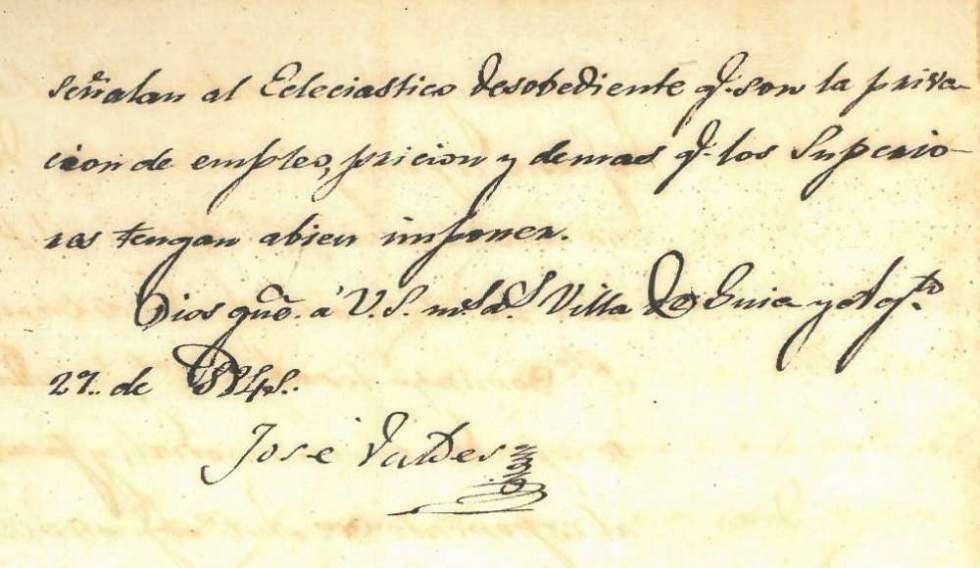 señalan al Ecleciastico desobediente q.e son la priva-
cion de empleo, pricion y demas q.e los Superio-
res tengan abien imponer.
Dios gũe. á V.S. m.s a.s Villa de Guia y Ag.to
27. de
José Valdes